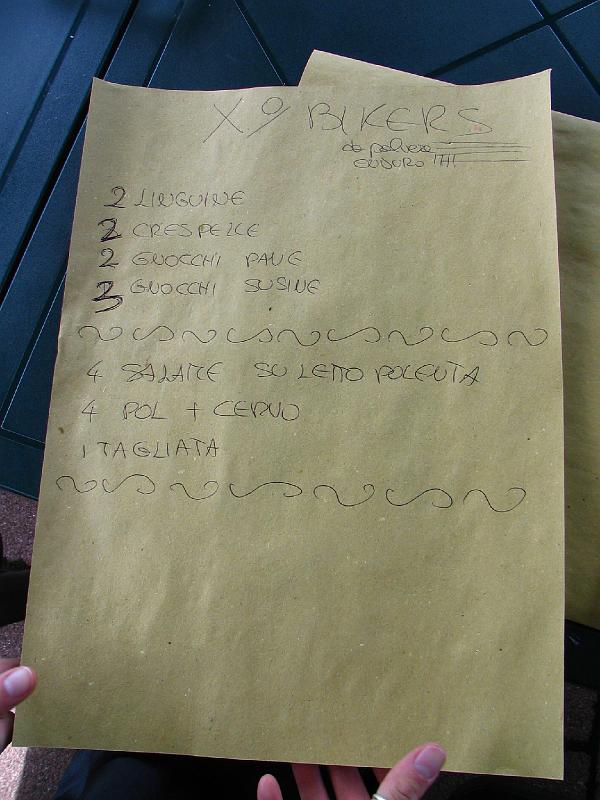 X 9 BIKERS
da polvere
ENDURO !!!
2 LINGUINE
2 CRESPELLE
2 GNOCCHI PANE
3 GNOCCHI SUSINE
4 SALAME SU LETTO POLENTA
4 POL + CERVO
1 TAGLIATA